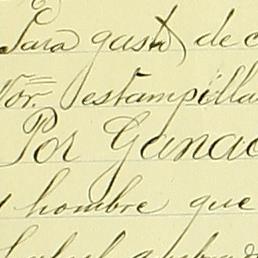 Para gasto de c
Por estampilla
Por Ganac
y hombre que